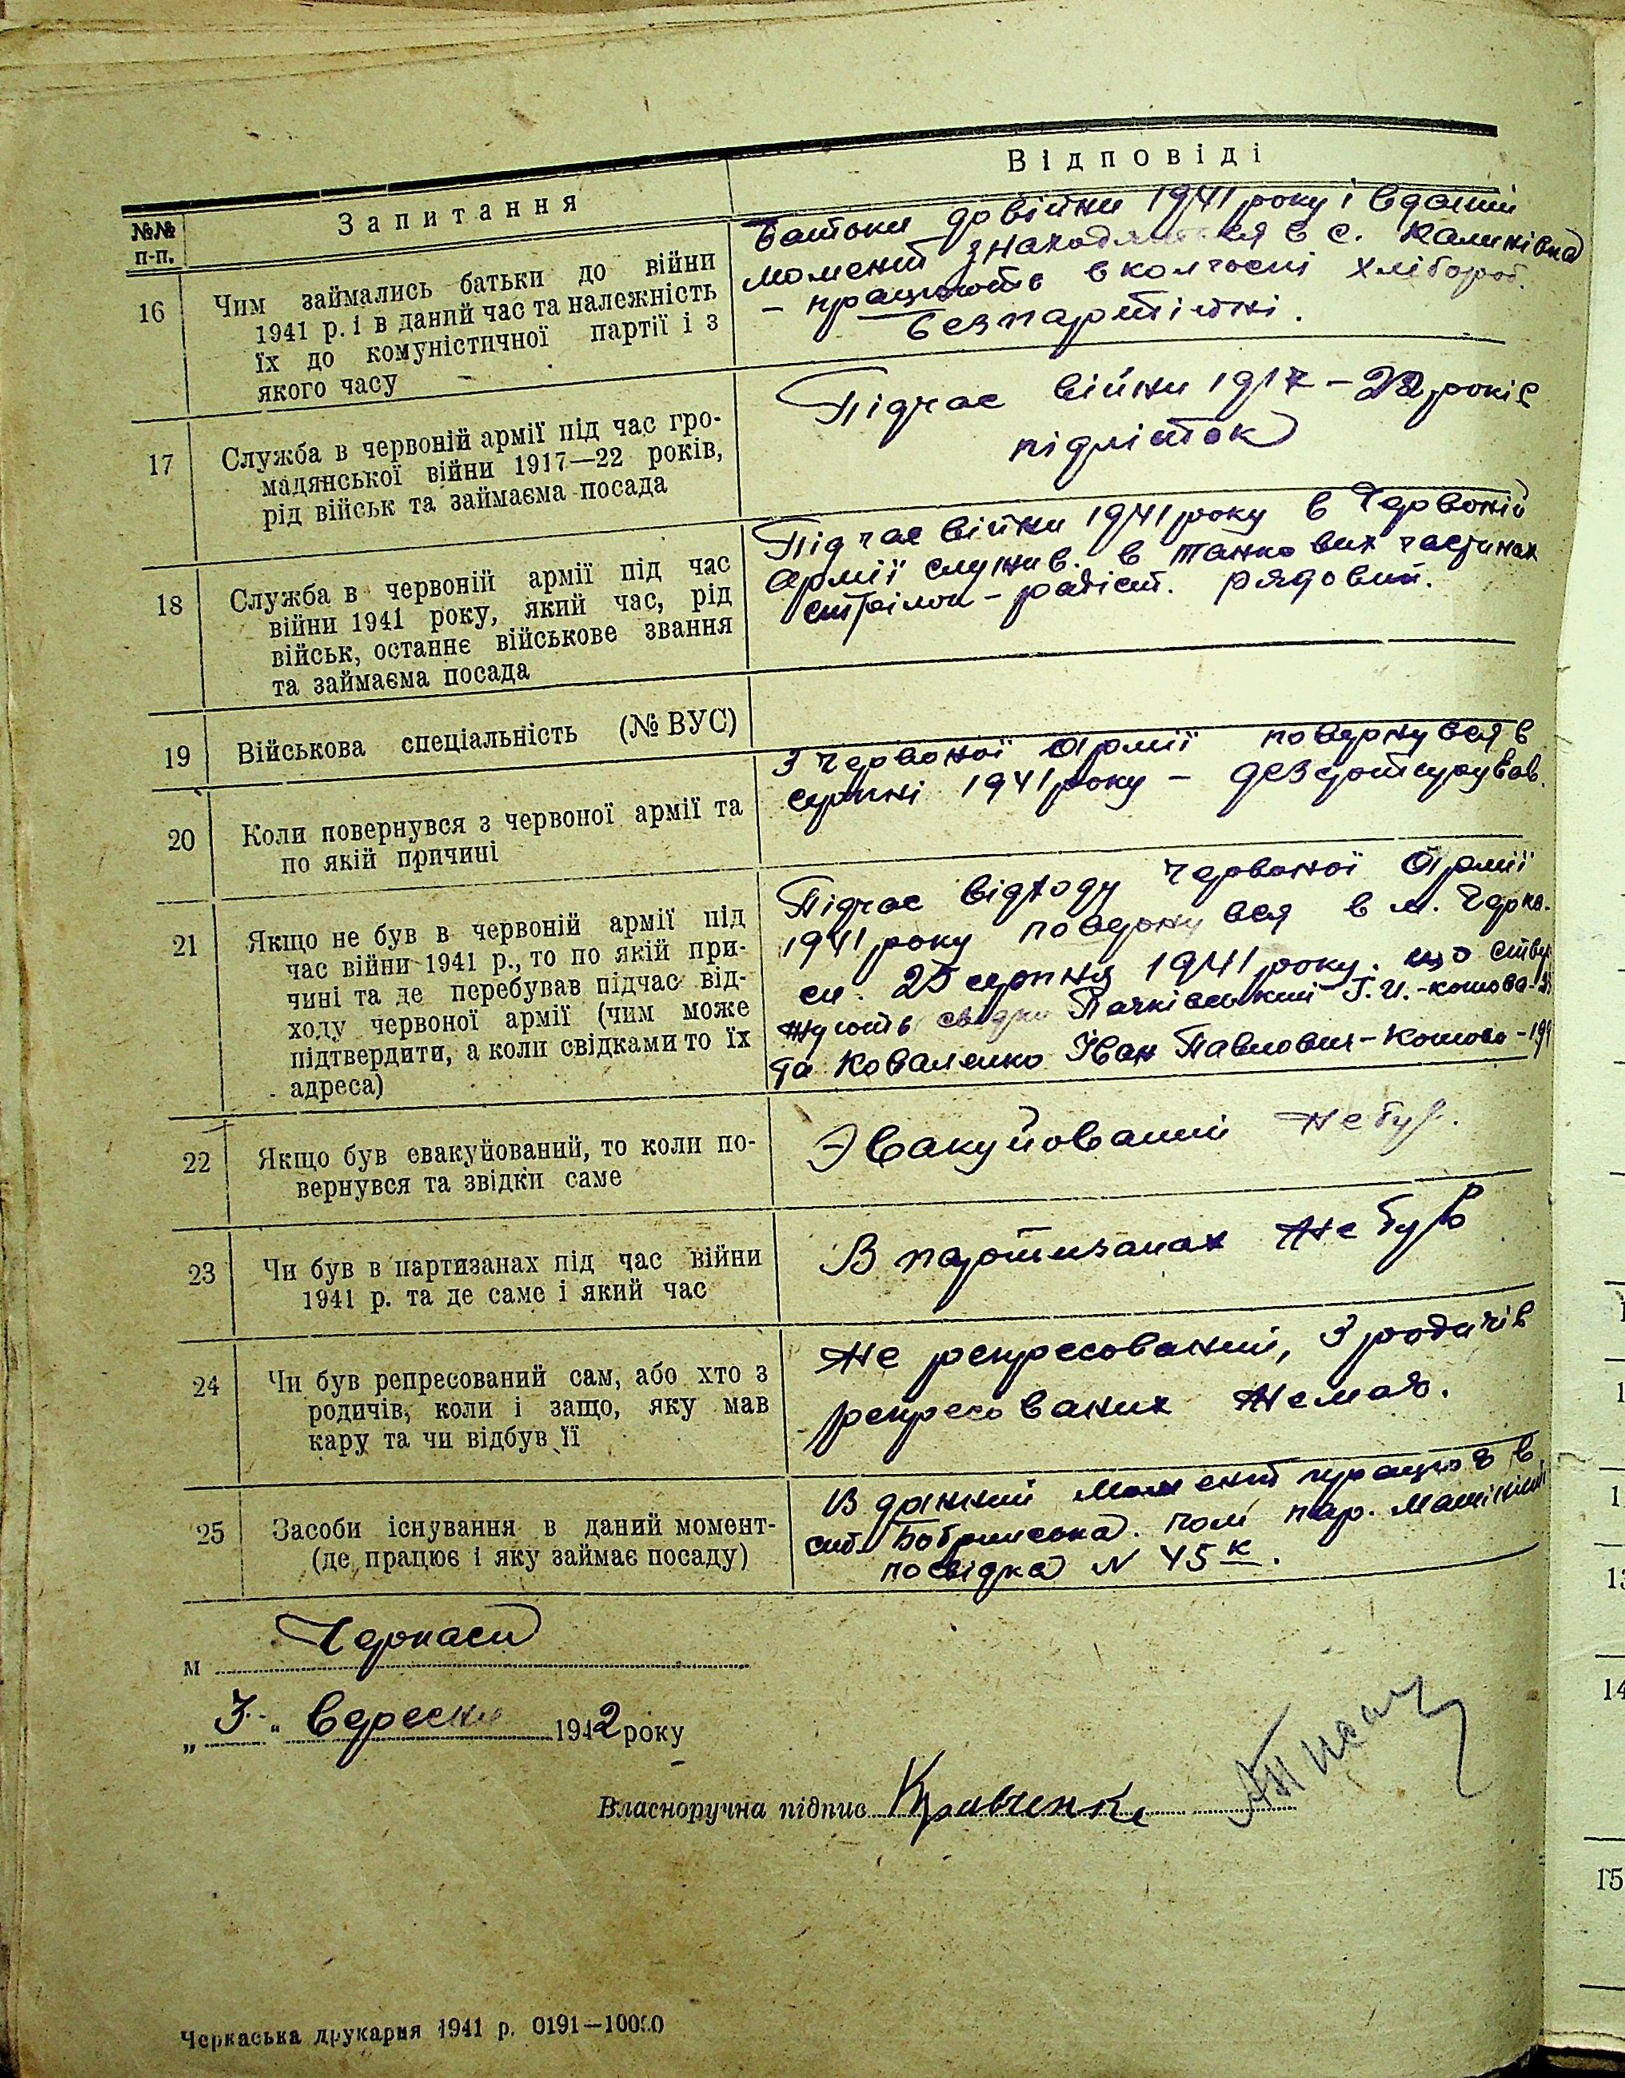 №№ п-п.
Запитання
Відповіді
16
Чим займались батьки до війни
1941 р. і в даний час та належність
їх до комуністичної партії і з
якого часу
Батьки до війни 1941 року і в даний
момент знаходяться в с. Калинівка
– працюють в колгоспі хлібороб.
безпартійні.
17
Служба в червоній армії під час гро-
мадянської війни 1917—22 років,
рід військ та займаєма посада
Підчас війни 1917 – 22 років
підліток
18
Служба в червоній армії під час
війни 1941 року, який час, рід
військ, останнє військове звання
та займаєма посада
Підчас війни 1941 року в Червоній
Армії служив. в танкових частинах
стрілок – радіст. рядовий.
19
Військова спеціальність (№ ВУС)
20
Коли повернувся з червоної армії та
по якій причині
З Червоної Армії повернувся в
серпні 1941 року – дезертирував.
21
Якщо не був в червоній армії під
час війни 1941 р., то по якій при-
чині та де перебував підчас від-
ходу червоної армії (чим може
підтвердити, а коли свідками то їх
адреса)
Підчас відходу Червоної Армії
1941 року повернувся в м. Черка-
си. 25 серпня 1941 року. що ствер
жують свідки І. И.
та Коваленко Іван Павлович –
22
Якщо був евакуйований, то коли по-
вернувся та звідки саме
Эвакуйований не був.
23
Чи був в партизанах під час війни
1941 р. та де саме і який час
В партизанах не був
24
Чи був репресований сам, або хто з
родичів, коли і защо, яку мав
кару та чи відбув її
Не репресований, З родичів
репресованих немає.
25
Засоби існування в даний момент-
(де працює і яку займає посаду)
В данний момент працюю в
ст. Бобринська. пом пар. машініст
посвідка N 45 к.
м Черкаси
„3" вересня 1942 року
Власноручна підпис Кравченко
Черкаська друкарня 1941 р. 0191—10000
13
14
15